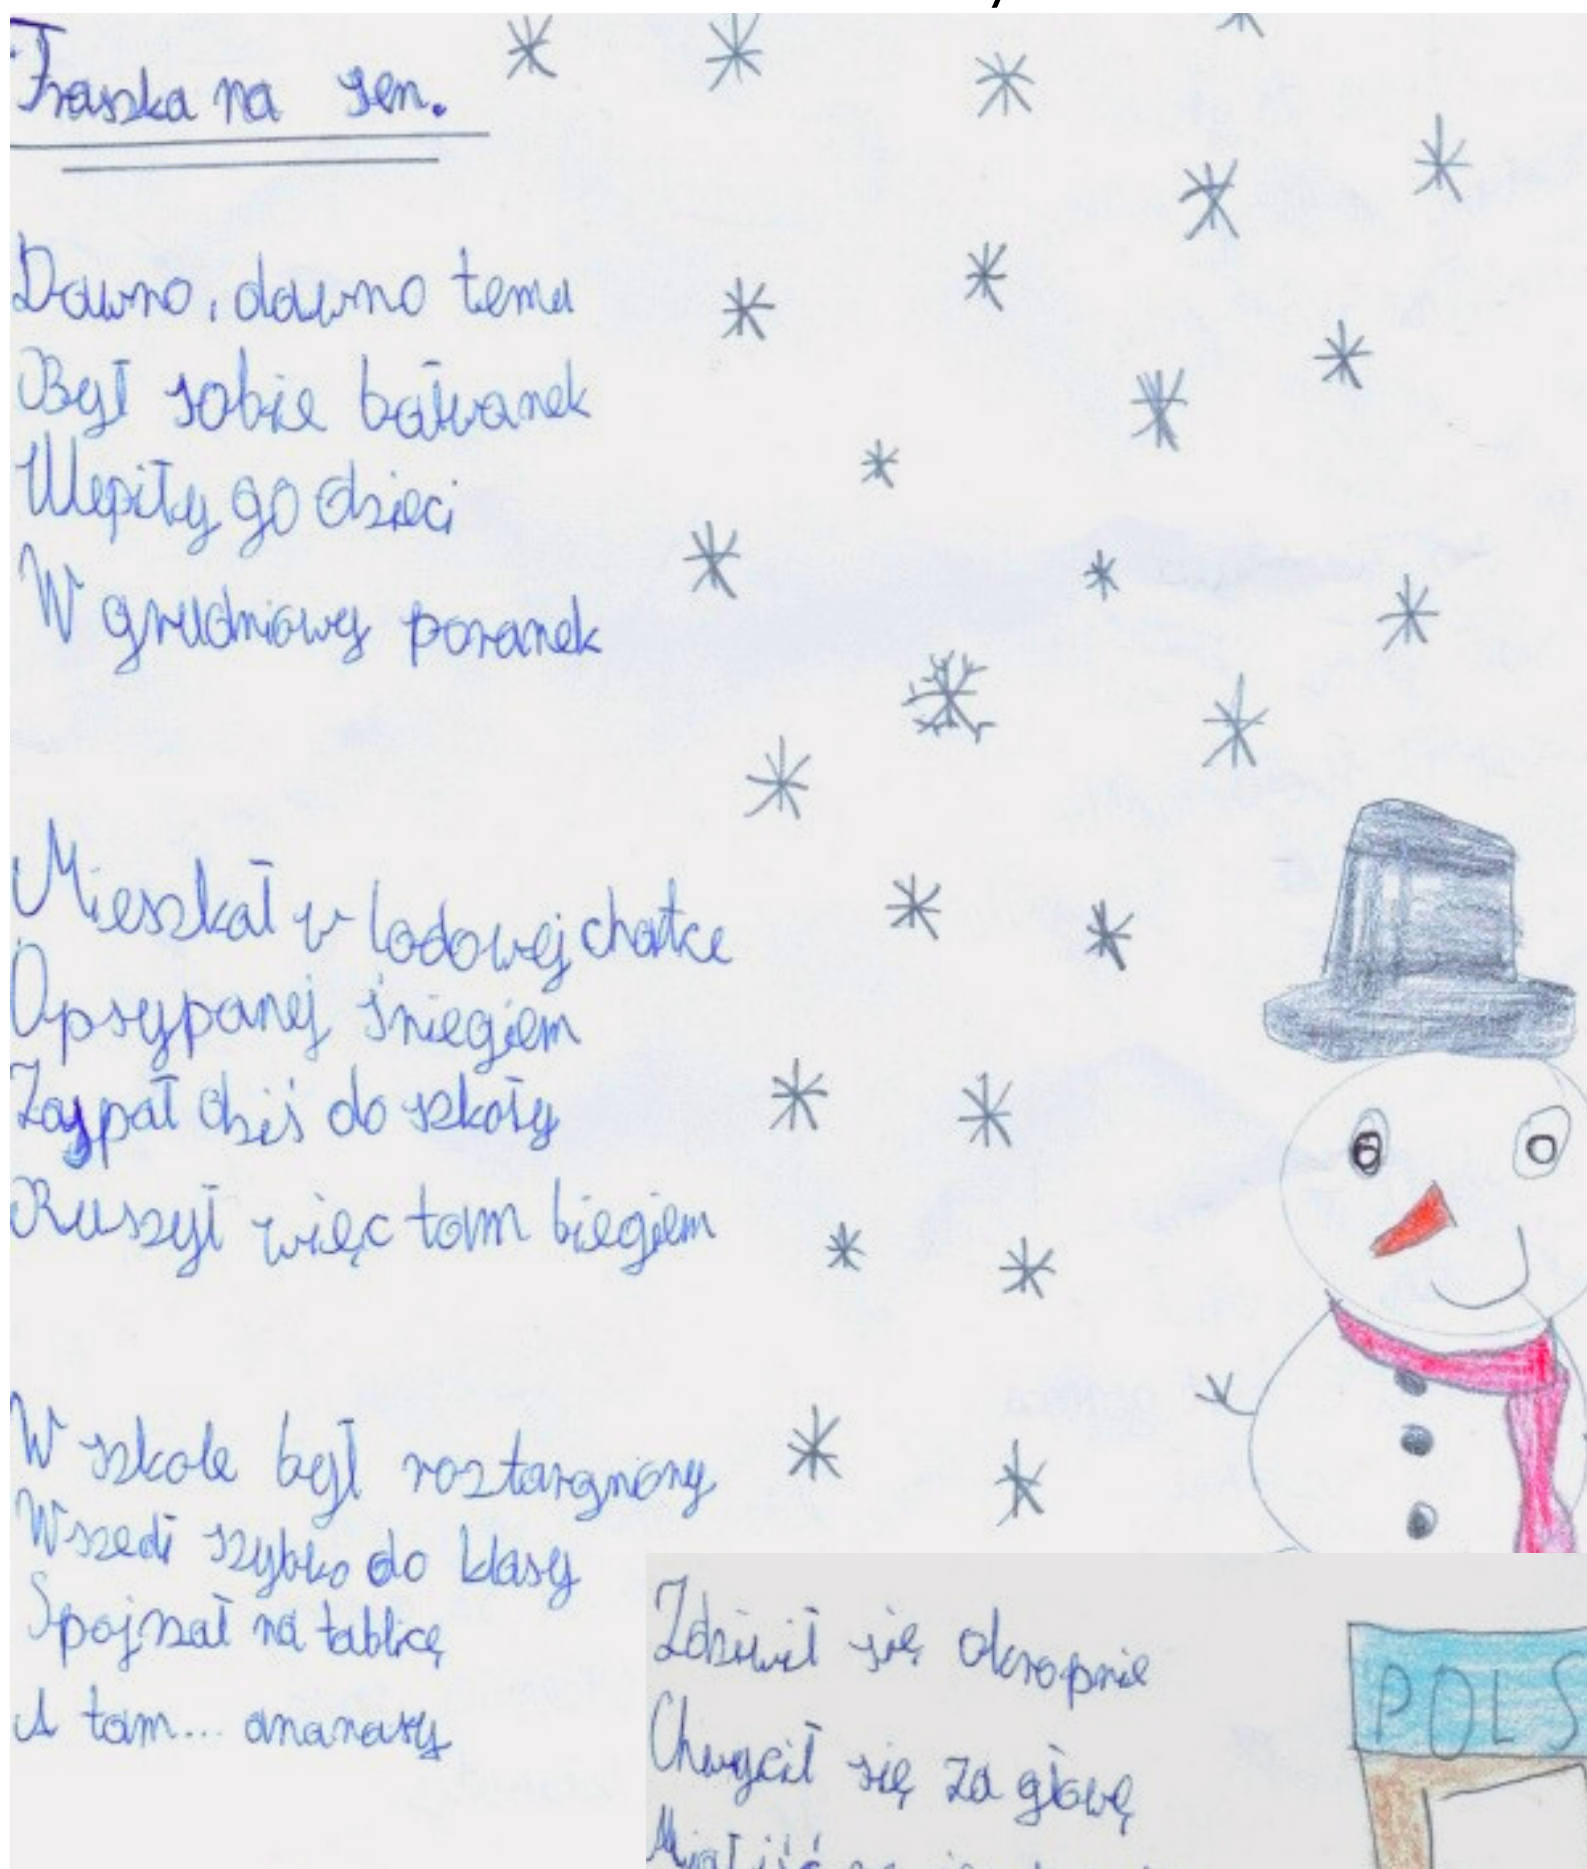 Fraszka na sen.
Dawno, dawno temu
Był sobie bałwanek
Ulepiły go dzieci
W grudniowy poranek
Mieszkał w lodowej chatce
Opsypanej śniegiem
Zaspał dziś do szkoły
Ruszył więc tam biegiem
W szkole był roztargniony
Wszedł szybko do klasy
Spojrzał na tablicę
A tam... ananasy
Zdziwił się okropnie
Chwycił się za głowę
POLS